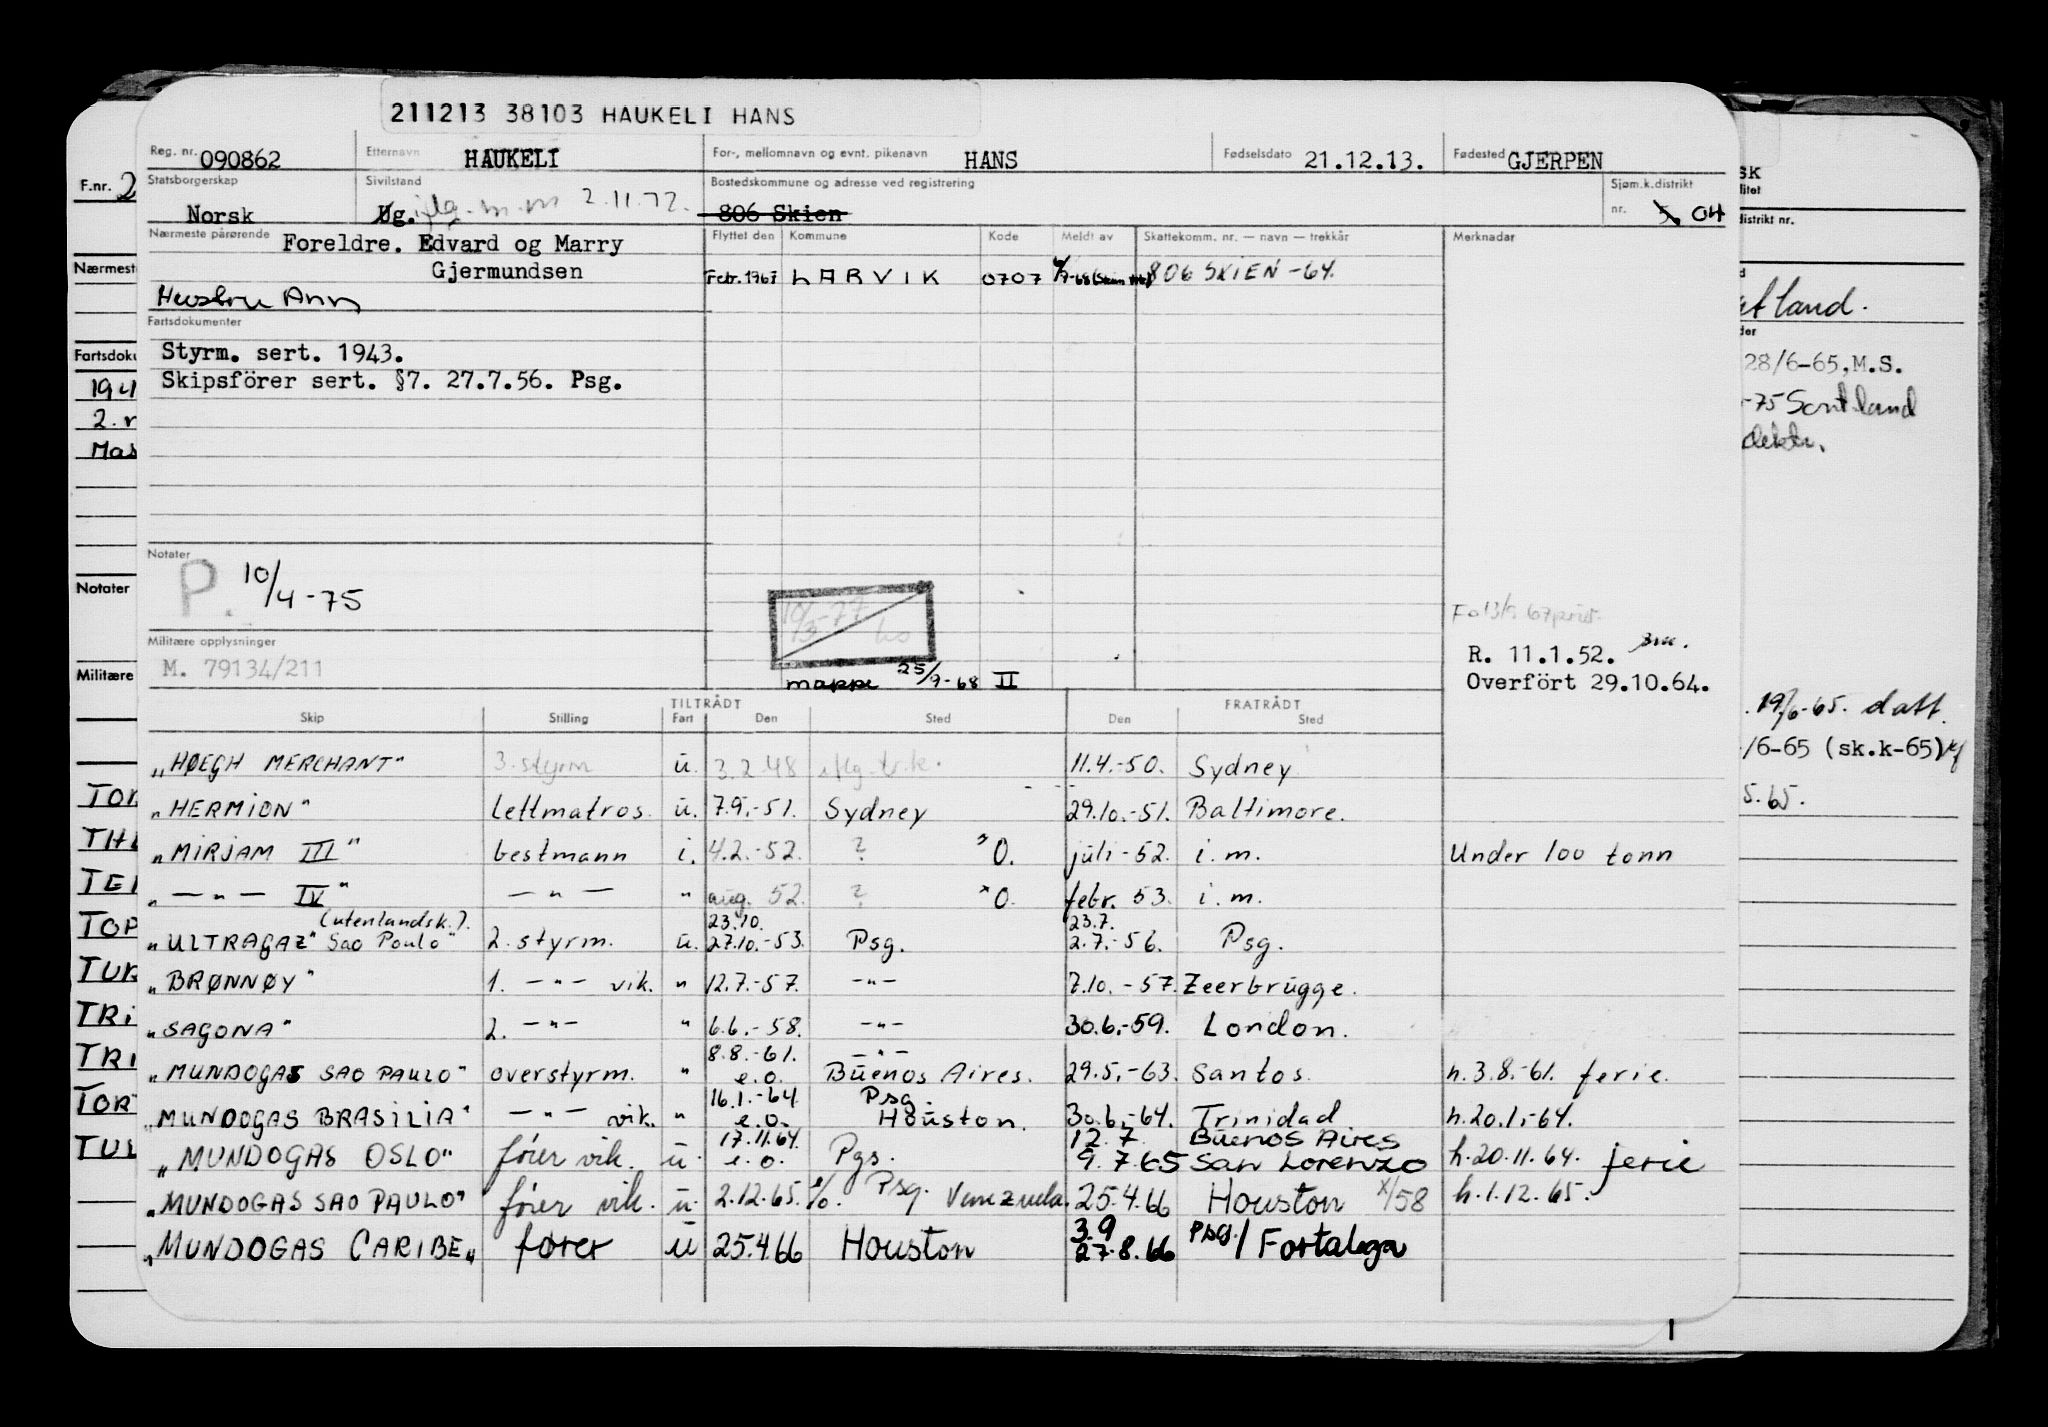 211213 38103 HAUKELI HANS
Reg. nr. 090862 Etternavn HAUKELI For-, mellomnavn og evnt. pikenavn HANS Fødselsdato 21.12.13. Fødested GJERPEN
Statsborgerskap Sivilstand Bostedskommune og adresse ved registrering Sjøm.k.distrikt
Norsk Ug. 2.11.72. 806 Skien nr. 04
Nærmeste pårørende Foreldre. Edvard og Marry
Gjermundsen
Hustru Ann
Flyttet den Kommune Kode Meldt av Skattekomm. nr. — navn — trekkår Merknader
Febr. 1967 LARVIK 0707 806 SKIEN -64.
Fartsdokumenter
Styrm. sert. 1943.
Skipsförer sert. §7. 27.7.56. Psg.
Notater
P. 10/4-75
Militære opplysninger
M. 79134/211
mappe 25/9-68 II
R. 11.1.52.
Overfört 29.10.64.
TILTRÅDT FRATRÅDT
Skip Stilling Fart Den Sted Den Sted
„HØEGH MERCHANT" 3. styrm u. 3.2.48 11.4.-50. Sydney
„HERMION" lettmatros. u. 7.9.-51. Sydney 29.10.-51. Baltimore.
„MIRJAM III" bestmann i. 4.2.-52. ? O. juli-52. i.m. Under 100 tonn
„ — " — IV" — " — " aug. 52. ? O. febr. 53. i.m.
(utenlandsk.). 23.10. 23.7.
„ULTRAGAZ" Sao Poulo" 2. styrm. u. 27.10.-53. Psg. 2.7.-56. Psg.
„BRØNNØY" 1. — " — vik. " 12.7.-57. — " — 7.10.-57. Zeerbrugge.
„SAGONA" 2. — " — " 6.6.-58. — " — 30.6.-59. London.
8.8.-61. — " —
„MUNDOGAS SAO PAULO" overstyrm. " e.o. Buenos Aires. 29.5.-63. Santos. h.3.8.-61. ferie.
16.1.-64 Psg
„MUNDOGAS BRASILIA" — " — vik. " e.o. Houston. 30.6.-64. Trinidad h.20.1.-64.
17.11.64. 12.7. Buenos Aires
„MUNDOGAS OSLO" fører vik. u. e.o. Pgs. 9.7.65 San Lorenzo h.20.11.64. ferie
„MUNDOGAS SAO PAULO" fører vik. u. 2.12.65. Psg. Venezuela. 25.4.66 Houston X/58 h.1.12.65.
3.9
„MUNDOGAS CARIBE" fører u 25.4.66 Houston 27.8.66 Psg./ Fortalega
F.nr. 2
Nærmest
Fartsdoku
194
2.
Mas
Notater
Militære
TOR
TOP
TUR
TRI
TRI
TOR
TUL
SK
distrikt nr.
28/6-65, M.S.
-75
19/6-65. datt.
/6-65 (sk.k-65)
5.65.
1